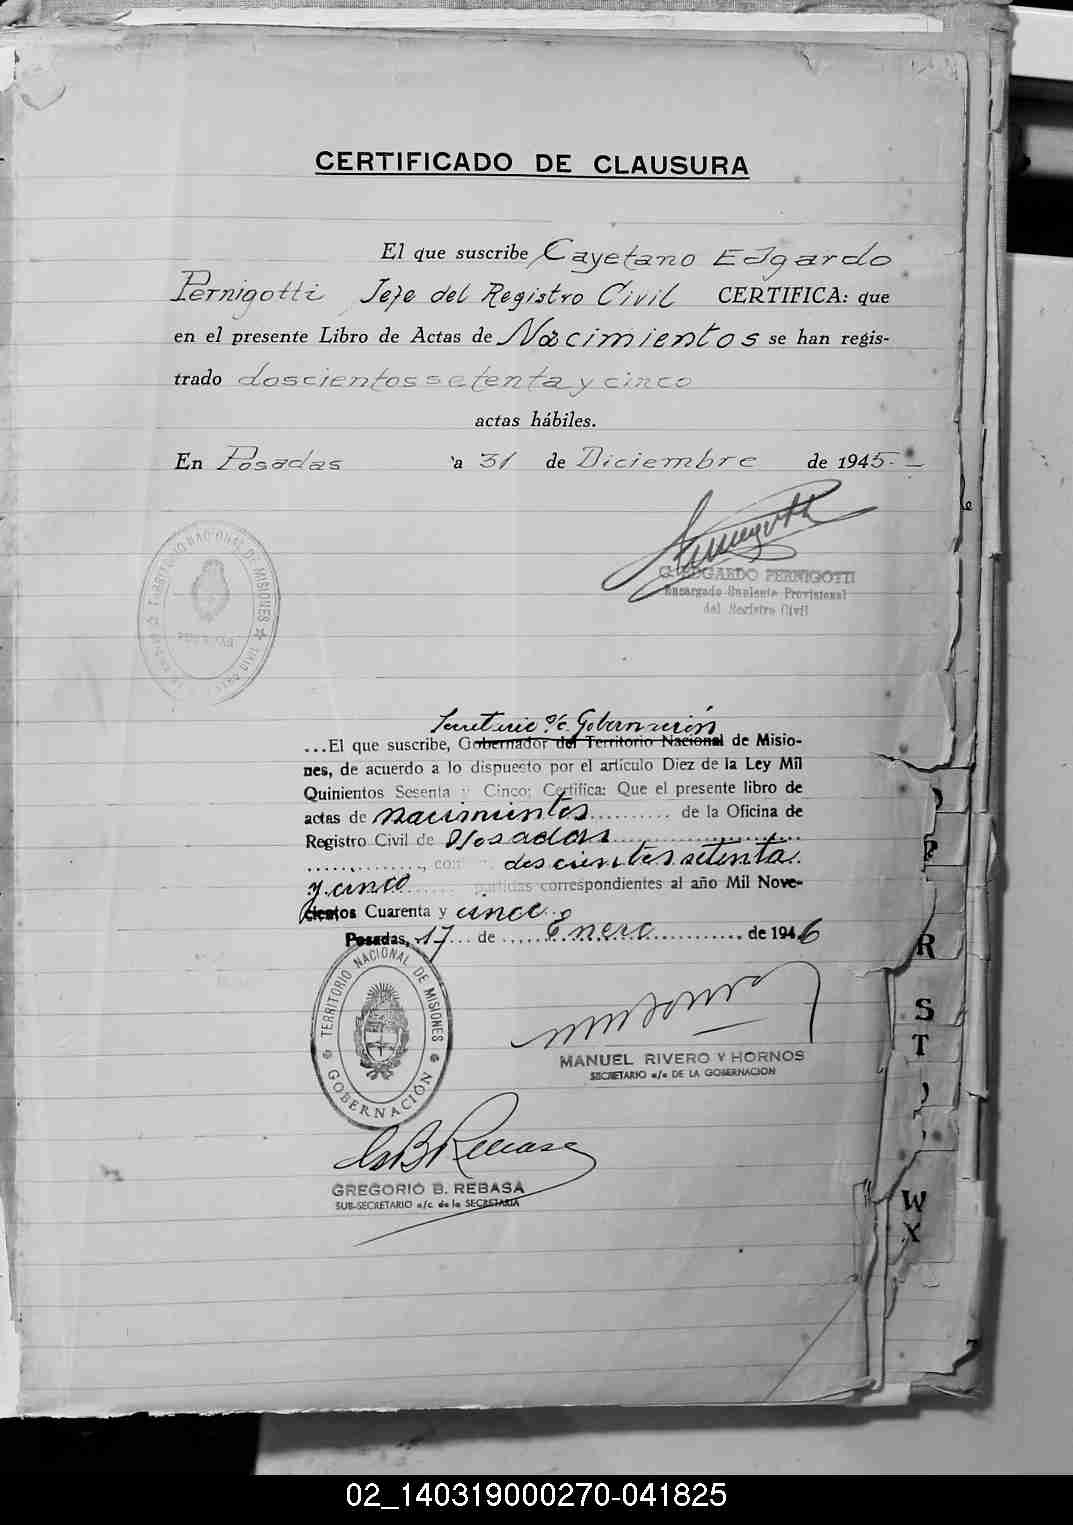 CERTIFICADO DE CLAUSURA
El que suscribe Cayetano Edgardo
Pernigotti Jefe del Registro Civil CERTIFICA: que
en el presente Libro de Actas de Nacimientos se han regis-
trado doscientos setenta y cinco
actas hábiles.
En Posadas a 31 de Diciembre de 1945.-
TERRITORIO NACIONAL DE MISIONES
G. EDGARDO PERNIGOTTI
Encargado Suplente Provisional
del Registro Civil
Secretario a/c. Gobernación
...El que suscribe, Gobernador del Territorio Nacional de Misio-
nes, de acuerdo a lo dispuesto por el artículo Diez de la Ley Mil
Quinientos Sesenta y Cinco; Certifica: Que el presente libro de
actas de nacimientos.......... de la Oficina de
Registro Civil de Posadas
doscientos setenta
y cinco...... partidas correspondientes al año Mil Nove-
cientos Cuarenta y cinco.
Posadas, 17 de Enero de 1946
TERRITORIO NACIONAL DE MISIONES
GOBERNACIÓN
MANUEL RIVERO Y HORNOS
SECRETARIO a/c DE LA GOBERNACION
GsBRebasa
GREGORIO B. REBASA
SUB-SECRETARIO a/c. de la SECRETARIA
P
R
S
T
W
X
02_140319000270-041825